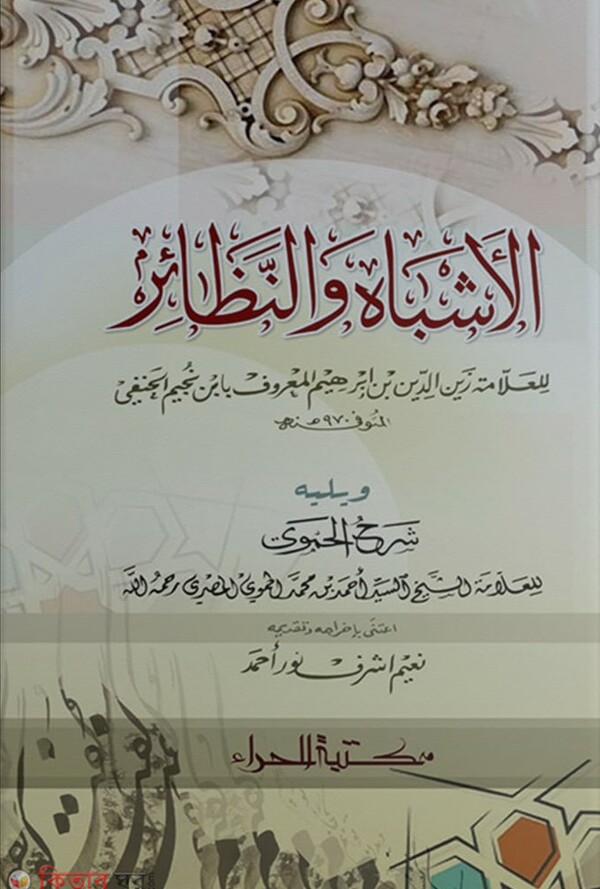 الأَشْبَاه وَالنَّظَائِر
للعلامة زين الدين بن إبرهيم المعروف بابن نجيم الحنفي
المتوفى ٩٧٠ سنه هـ
ويليه
شرح الحموي
للعلامة الشيخ السيد أحمد بن محمد الحموي المصري رحمه الله
اعتنى بإخراجه وتقديمه
نعيم اشرف نور أحمد
مكتبة الحراء
কিতাব ঘর